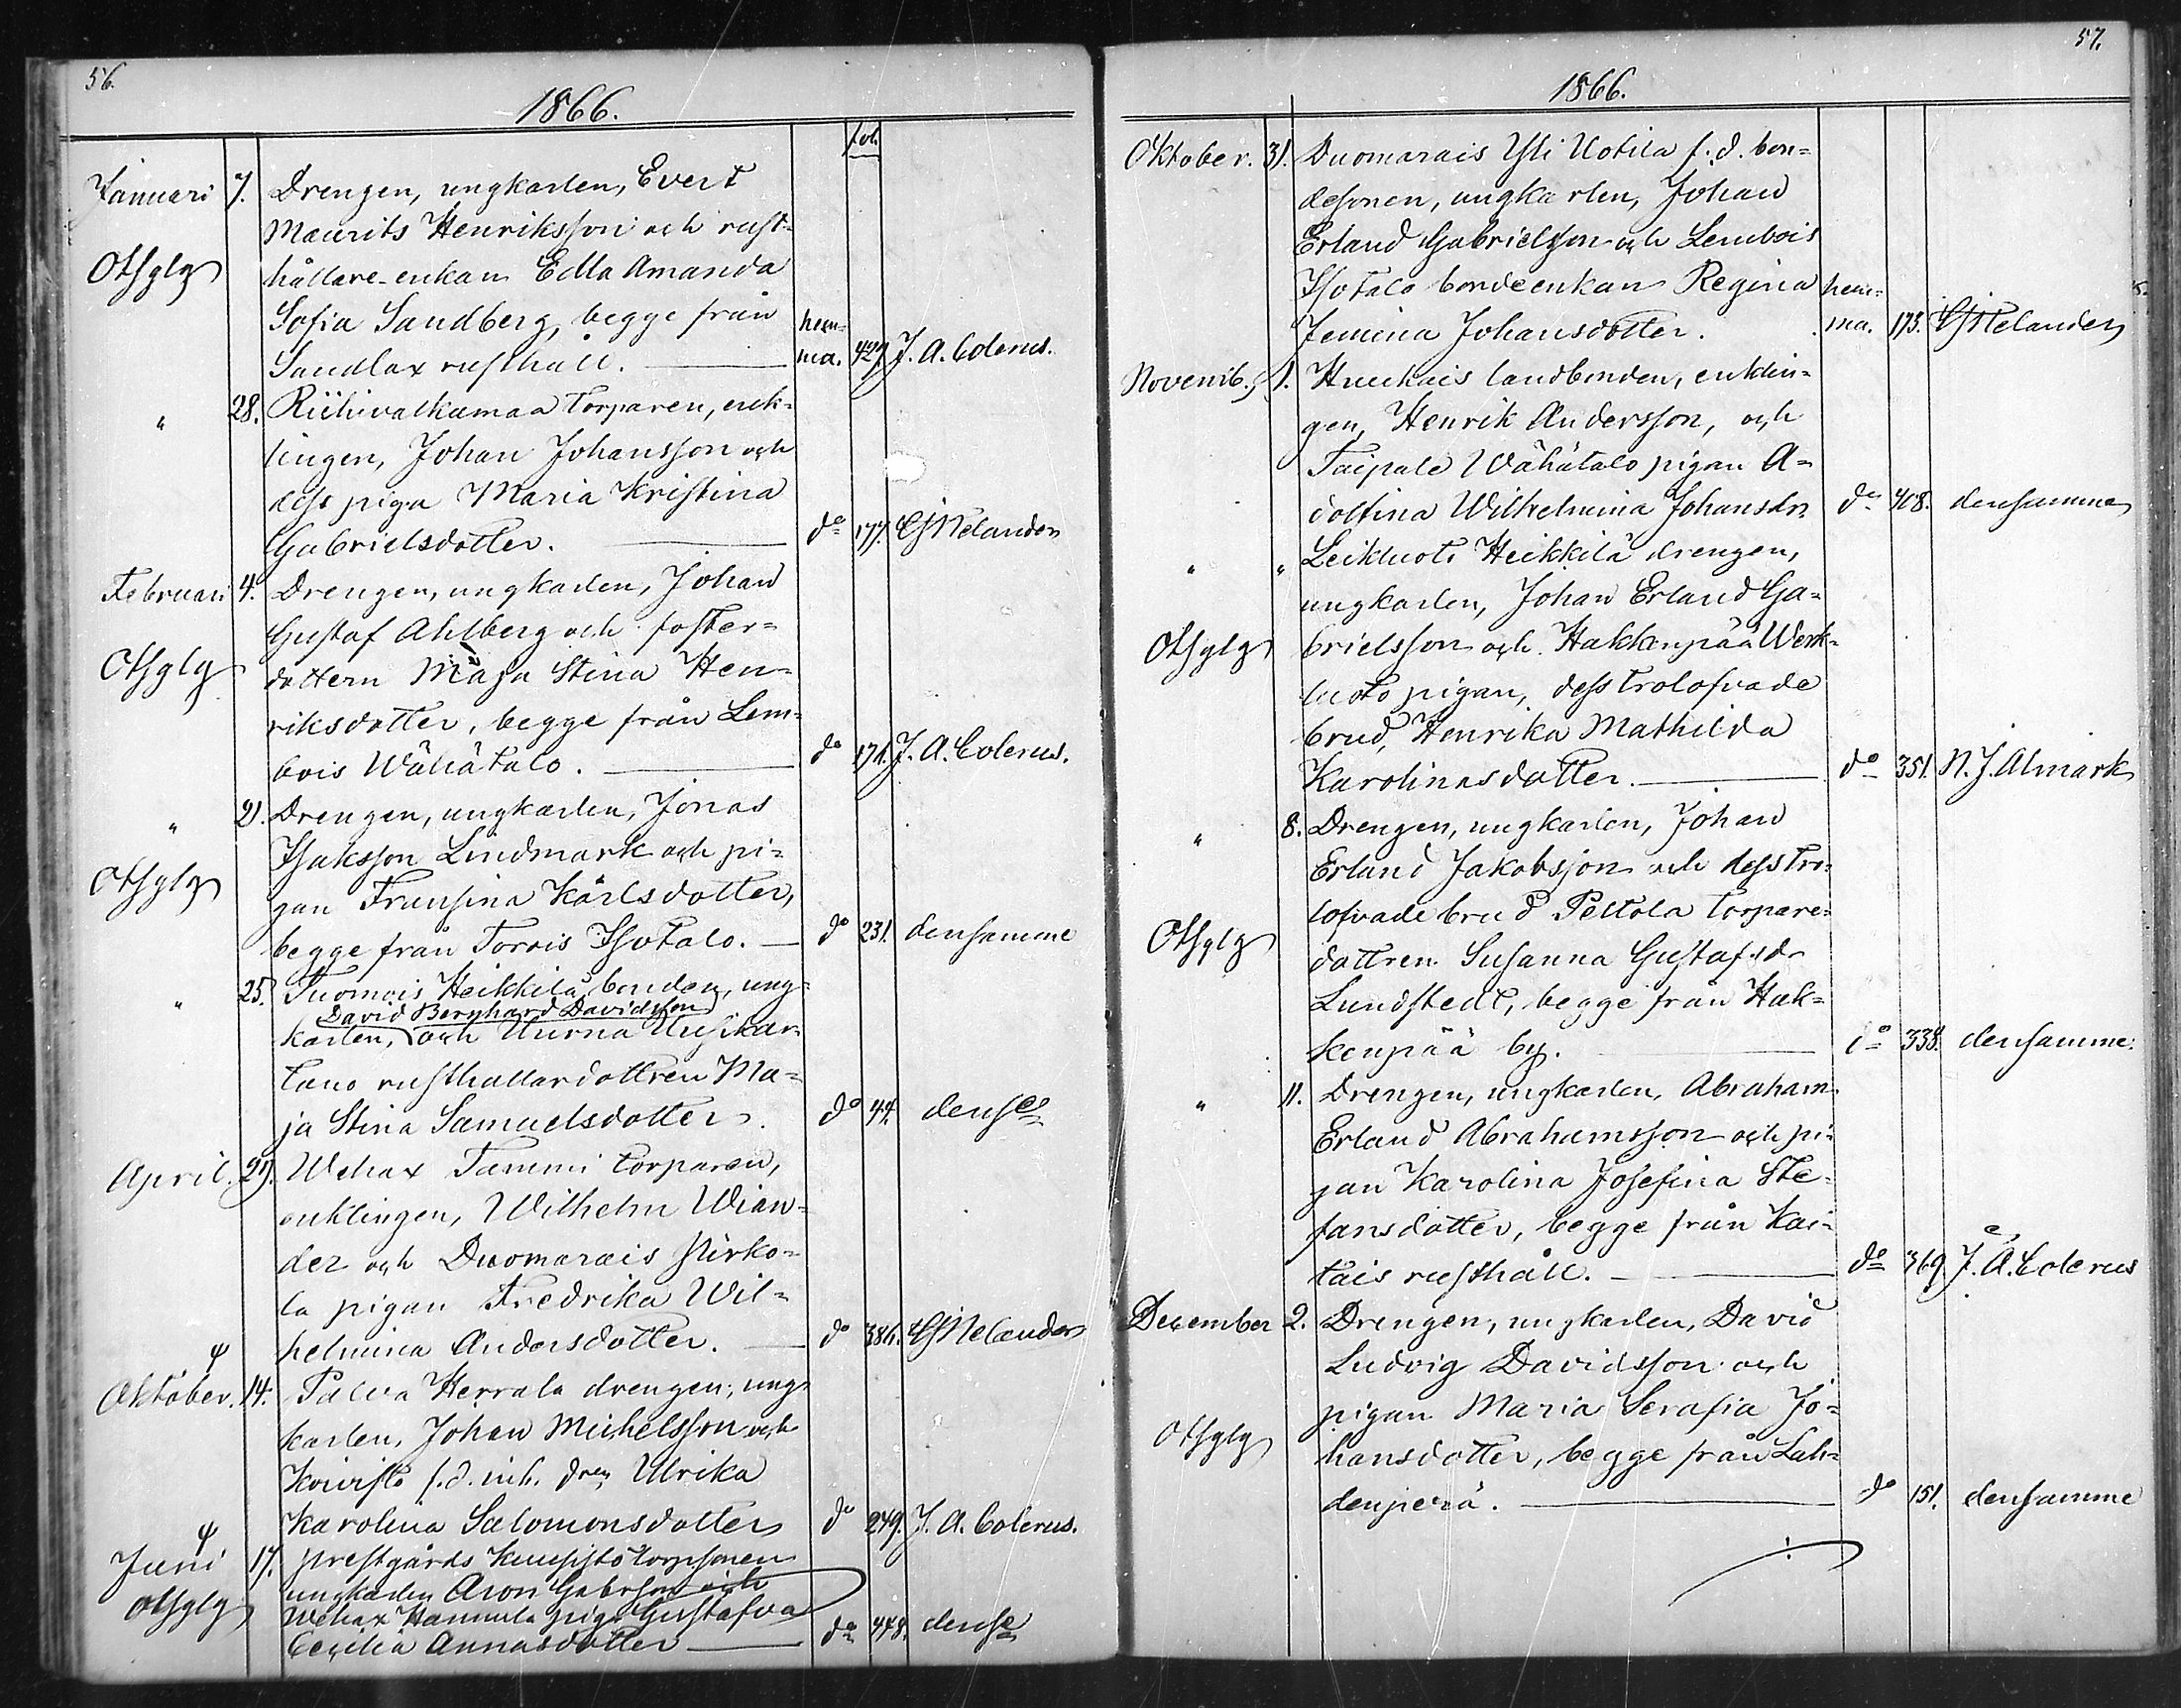 56.
1866.
fol.
Januari 7. Drengen, ungkarlen, Evert
Maurits Henriksson och rust-
Otsglg hållare-enkan Edla Amanda
Sofia Sandberg, begge från hem-
Sandlax rusthåll. — ma. 427. J. A. Colerus.
" 28. Riihivalkamaa torparen, enk-
lingen, Johan Johansson och
dess piga Maria Kristina
Gabrielsdotter. — do 177. GMelander
Februari 4. Drengen, ungkarlen, Johan
Gustaf Ahlberg och foster-
Otsglg dottern Maja Stina Hen-
riksdotter, begge från Lem-
bois Wähätalo. — do 174. J. A. Colerus.
" 21. Drengen, ungkarlen, Jonas
Isaksson Lindmark och pi-
Otsglg gan Fransina Karlsdotter,
begge från Torrois Isotalo. — do 231. densamme
" 25. Tuomois Heikkilä bonden, ung-
David Bernhard Davidsson
karlen, och Uusikar-
tano rusthållardottren Ma-
ja Stina Samuelsdotter. do 44. dense
April. 29. Wehax Tammi torparen,
enklingen, Wilhelm Wian-
der och Duomarais Pirko-
la pigan Fredrika Wil-
helmina Andersdotter. — do 386. GMelander
Oktober. 14. Palva Herrala drengen, ung-
karlen, Johan Michelsson och
Koivisto f.d. inh. dren Ulrika
Karolina Salomonsdotter do 249. J. A. Colerus.
Juni 17. Prestgårds Kuusisto torpsonen
Otsglg ungkarlen Aron Gabrsson och
Wehax Hannula piga Gustafva
Cecilia Annasdotter — do 448. dense
57.
1866.
Oktober. 31. Duomarais Yli Uotila f.d. bon-
desonen, ungkarlen, Johan
Erland Gabrielsson och Lembois
Isotalo bondeenkan Regina hem-
Jemina Johansdotter. ma. 173. GMelander
Novemb. 1. landbonden, enklin-
gen, Henrik Andersson, och
Taipale Wähätalo pigan A-
dolfina Wilhelmina Johansdr. do 408. densamme
" " Leikluoto Heikkilä drengen,
ungkarlen, Johan Erland Ga-
Otsglg brielsson och Hakkenpää Werk-
luoto pigan, dess trolofvade
brud, Henrika Mathilda
Karolinasdotter. — do 351. N. J. Almark
" 8. Drengen, ungkarlen, Johan
Erland Jakobsson och dess tro-
lofvade brud Peltola torpare-
Otsglg dottren Susanna Gustafsdr
Lundstedt, begge från Hak-
kenpää by. — do 338. densamme.
" 11. Drengen, ungkarlen, Abraham
Erland Abrahamsson och pi-
gan Karolina Josefina Ste-
fansdotter, begge från Kai-
tais rusthåll. — do 369 J. A. Colerus
December 2. Drengen, ungkarlen, David
Ludvig Davidsson och
pigan Maria Serafia Jo-
Otsglg hansdotter, begge från Lah-
denperä. — do 151. densamme